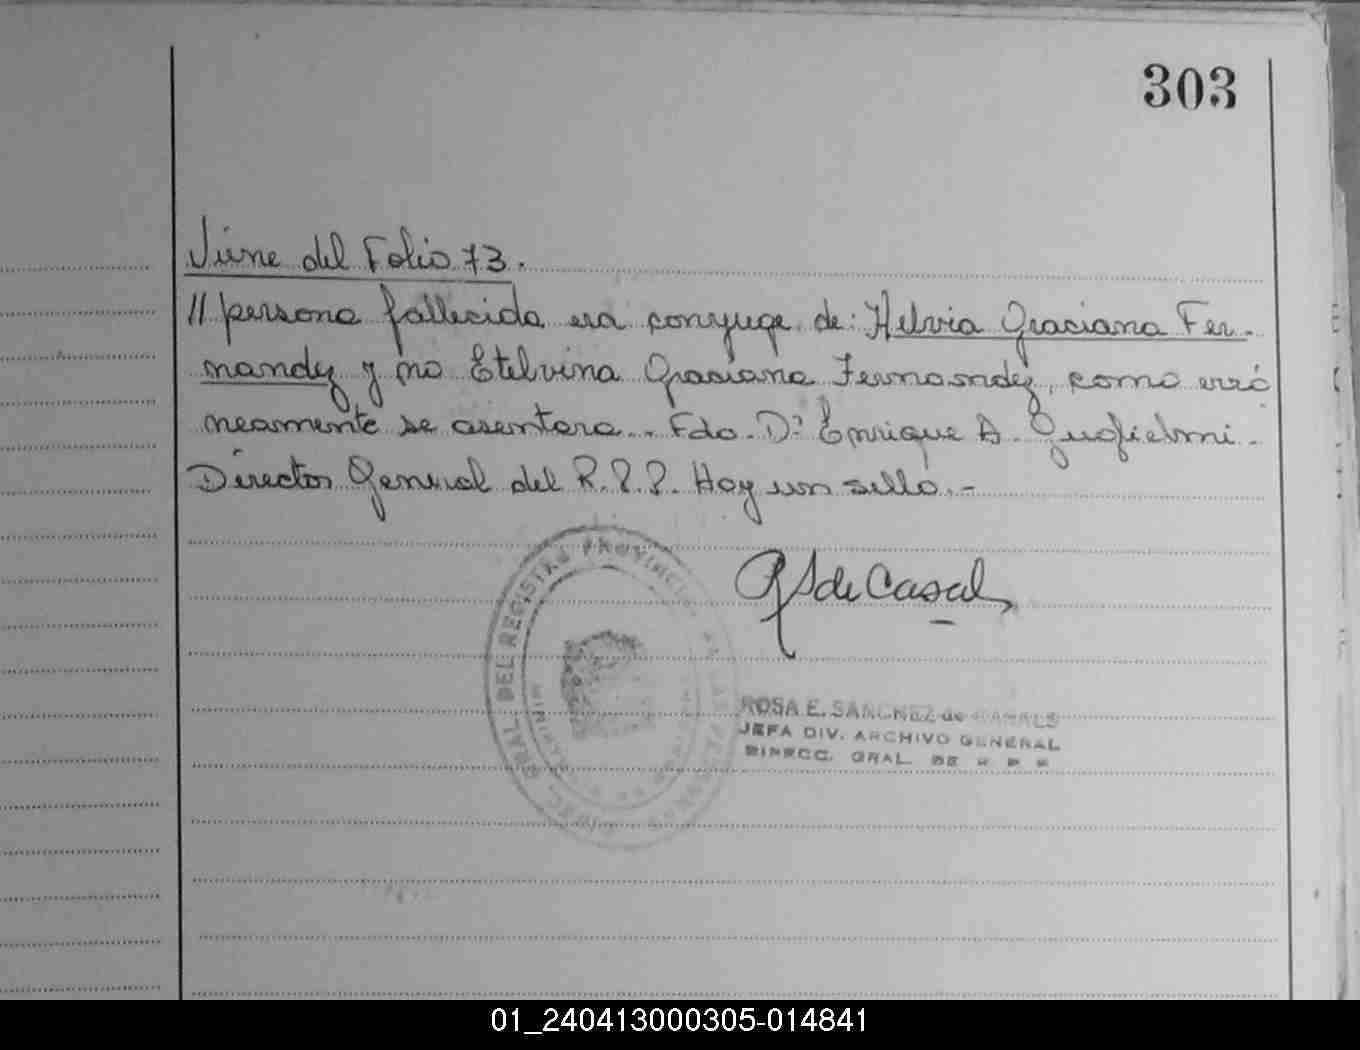 303
Viene del Folio 73.
// persona fallecida era conyuge de: Helvia Graciana Fer-
nandez y no Etelvina Graciana Fernandez, como erró
neamente se asentara.. Fdo. Dr. Enrique A. Guglielmi -
Director General del R.P.P. Hay un sello.-
RS de Casal
DIREC. GRAL. DEL REGISTRO PROVINCIAL DE LAS PERSONAS
ROSA E. SANCHEZ de CASALS
JEFA DIV. ARCHIVO GENERAL
DIRECC. GRAL. DE R P P
01_240413000305-014841